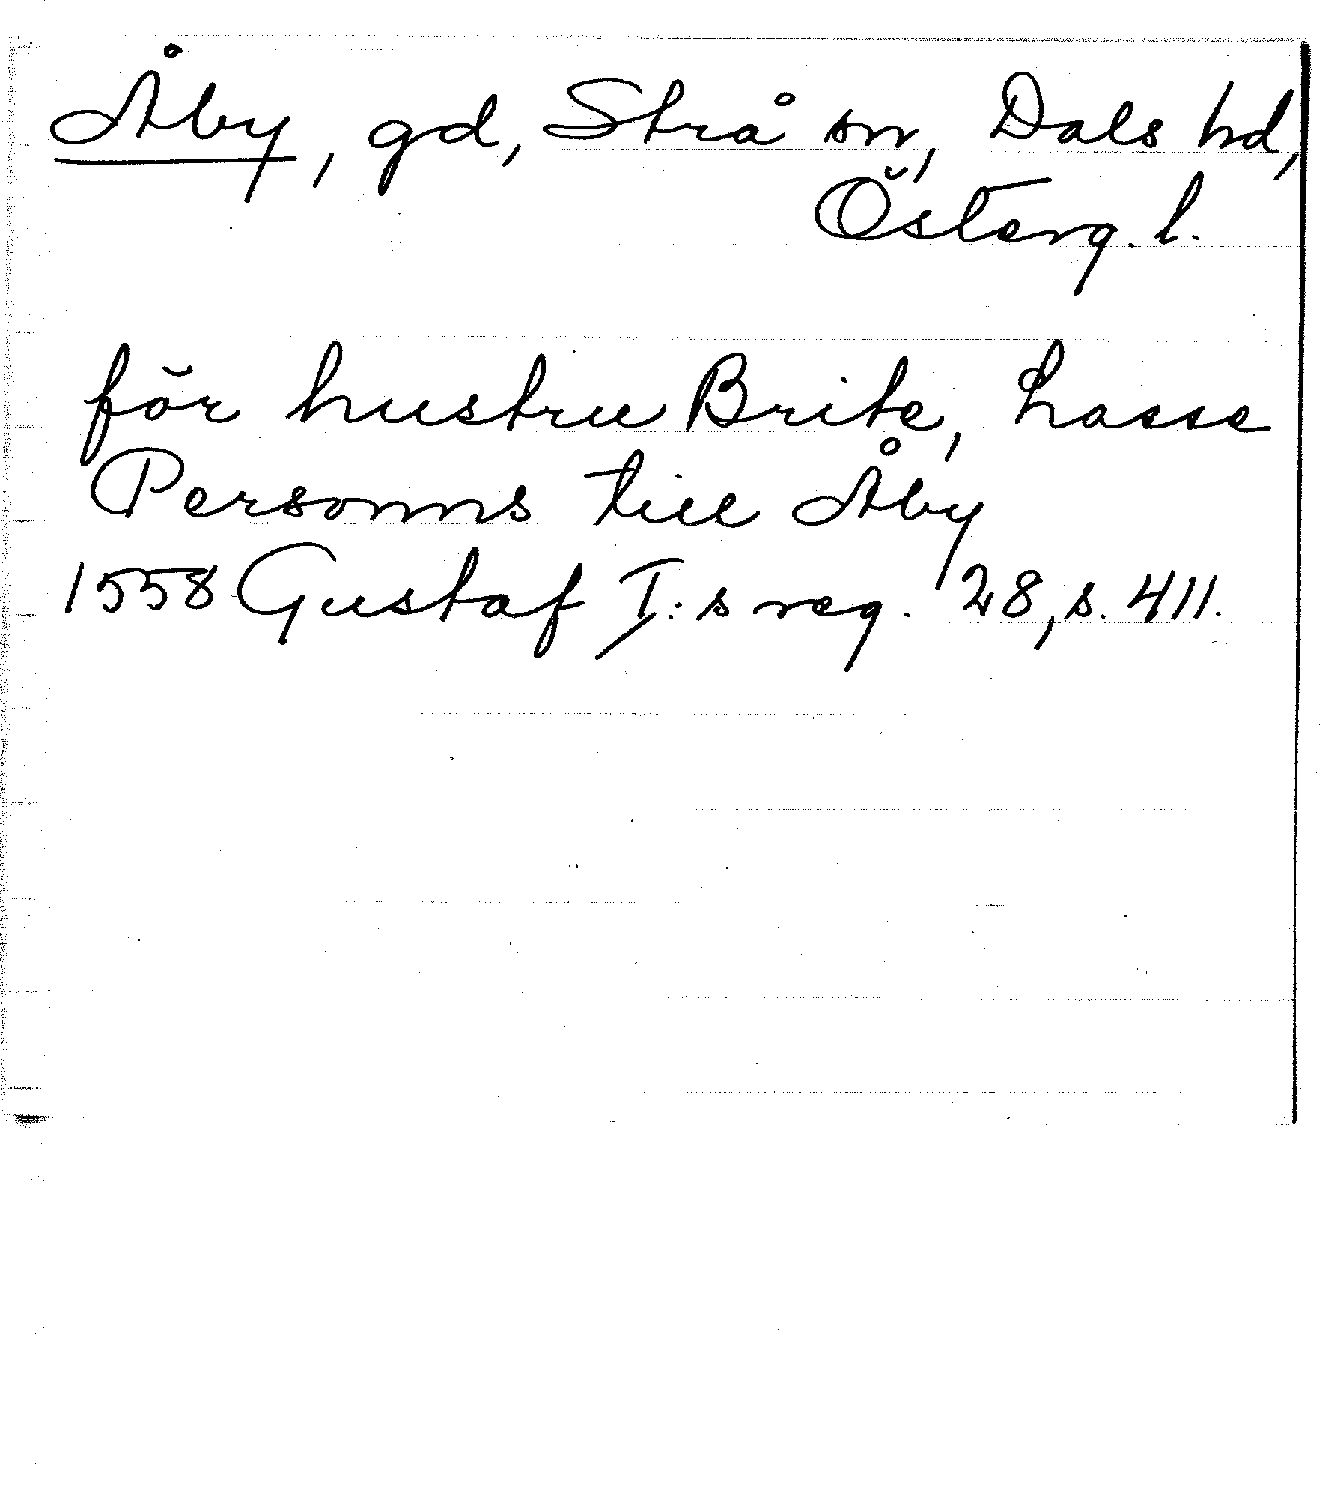 Åby, gd, Strå sn, Dals hd,
Österg. l.
för hustru Brite, Lasse
Personns till Åby
1558 Gustaf I:s reg. 28, s. 411.